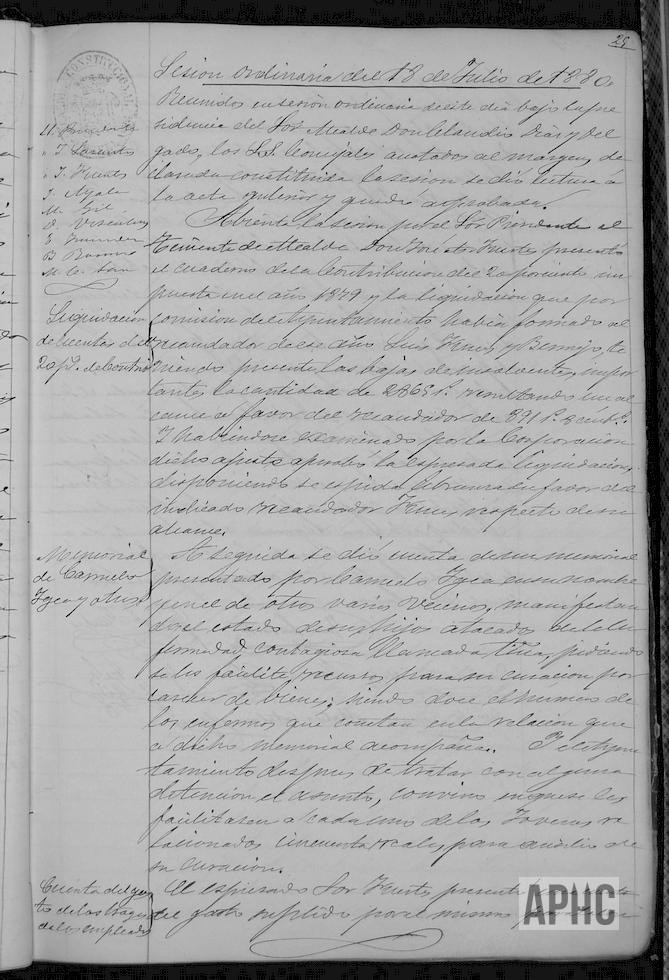 25
Sesion ordinaria del 18 de Julio de 1880.
Reunidos en sesion ordinaria de este dia bajo la pre
sidencia del Sor Alcalde Don Claudio Diaz y Del
gado, los S.S. Concejales anotados al margen, de
clarada constituida la sesion se dió lectura á
la acta anterior y quedó aprobada.
Abierta la sesion por el Sor Presidente el
Teniente de Alcalde Don presentó
el cuaderno de la Contribucion del 20 por ciento im
puesta en el año 1879 y la liquidacion que por
comision del Ayuntamiento habia formado al
recaudador de ese año Luis y Bermejo, te
niendo presente las bajas de insolventes impor
tantes la cantidad de 2865 P. resultando un al
cance a favor del recaudador de 391 P.
Y habiendose examinado por la Corporacion
dicho ajuste aprobó la espresada liquidacion,
disponiendo se espida libramiento a favor del
indicado recaudador respecto de su
alcance.
A seguida se dió cuenta de un memorial
presentado por Carmelo Ygea en su nombre
y en el de otros varios vecinos, manifestan
do el estado de sus hijos atacados de la en
fermedad contagiosa llamada tiña, pidiendo
se les facilite recursos para su curacion por
carecer de bienes; siendo doce el numero de
los enfermos que constan en la relacion que
a dicho memorial acompaña. Y el Ayun
tamiento despues de tratar con alguna
detencion el asunto, convino en que se les
facilitasen a cada uno de los Jovenes re
lacionados cincuenta reales para auxilio de
su curacion.
El espresado Sor presenta
del gasto suplido por el mismo
Sr. Presidente
J. Ayala
M. Gil
Liquidacion
de cuentas del
20 p% de Contrib
Memorial
de Carmelo
Ygea y otros
Cuenta del gas
to de los trages
de los empleados
APHC